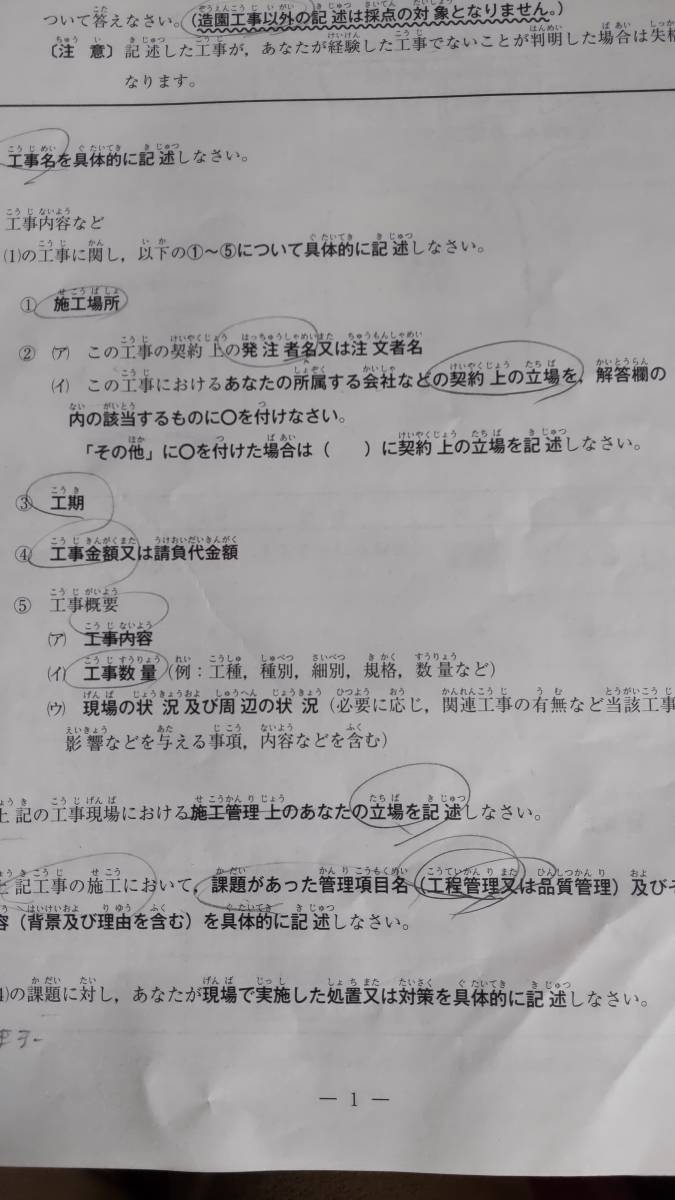 ついて答えなさい。（造園工事以外の記述は採点の対象となりません。）
〔注 意〕記述した工事が，あなたが経験した工事でないことが判明した場合は失格
なります。
工事名を具体的に記述しなさい。
工事内容など
(1)の工事に関し，以下の①～⑤について具体的に記述しなさい。
① 施工場所
② ㋐ この工事の契約上の発注者名又は注文者名
㋑ この工事におけるあなたの所属する会社などの契約上の立場を，解答欄の
内の該当するものに○を付けなさい。
「その他」に○を付けた場合は（　　）に契約上の立場を記述しなさい。
③ 工期
④ 工事金額又は請負代金額
⑤ 工事概要
㋐ 工事内容
㋑ 工事数量（例：工種，種別，細別，規格，数量など）
㋒ 現場の状況及び周辺の状況（必要に応じ，関連工事の有無など当該工事
影響などを与える事項，内容などを含む）
上記の工事現場における施工管理上のあなたの立場を記述しなさい。
上記工事の施工において，課題があった管理項目名（工程管理又は品質管理）及びそ
容（背景及び理由を含む）を具体的に記述しなさい。
4)の課題に対し，あなたが現場で実施した処置又は対策を具体的に記述しなさい。
― 1 ―